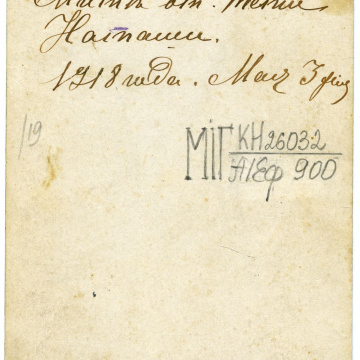 от. тети
Наташи.
1918 года. Мая 3 дня
/19
МІГ КН 26032
А1Еф 900